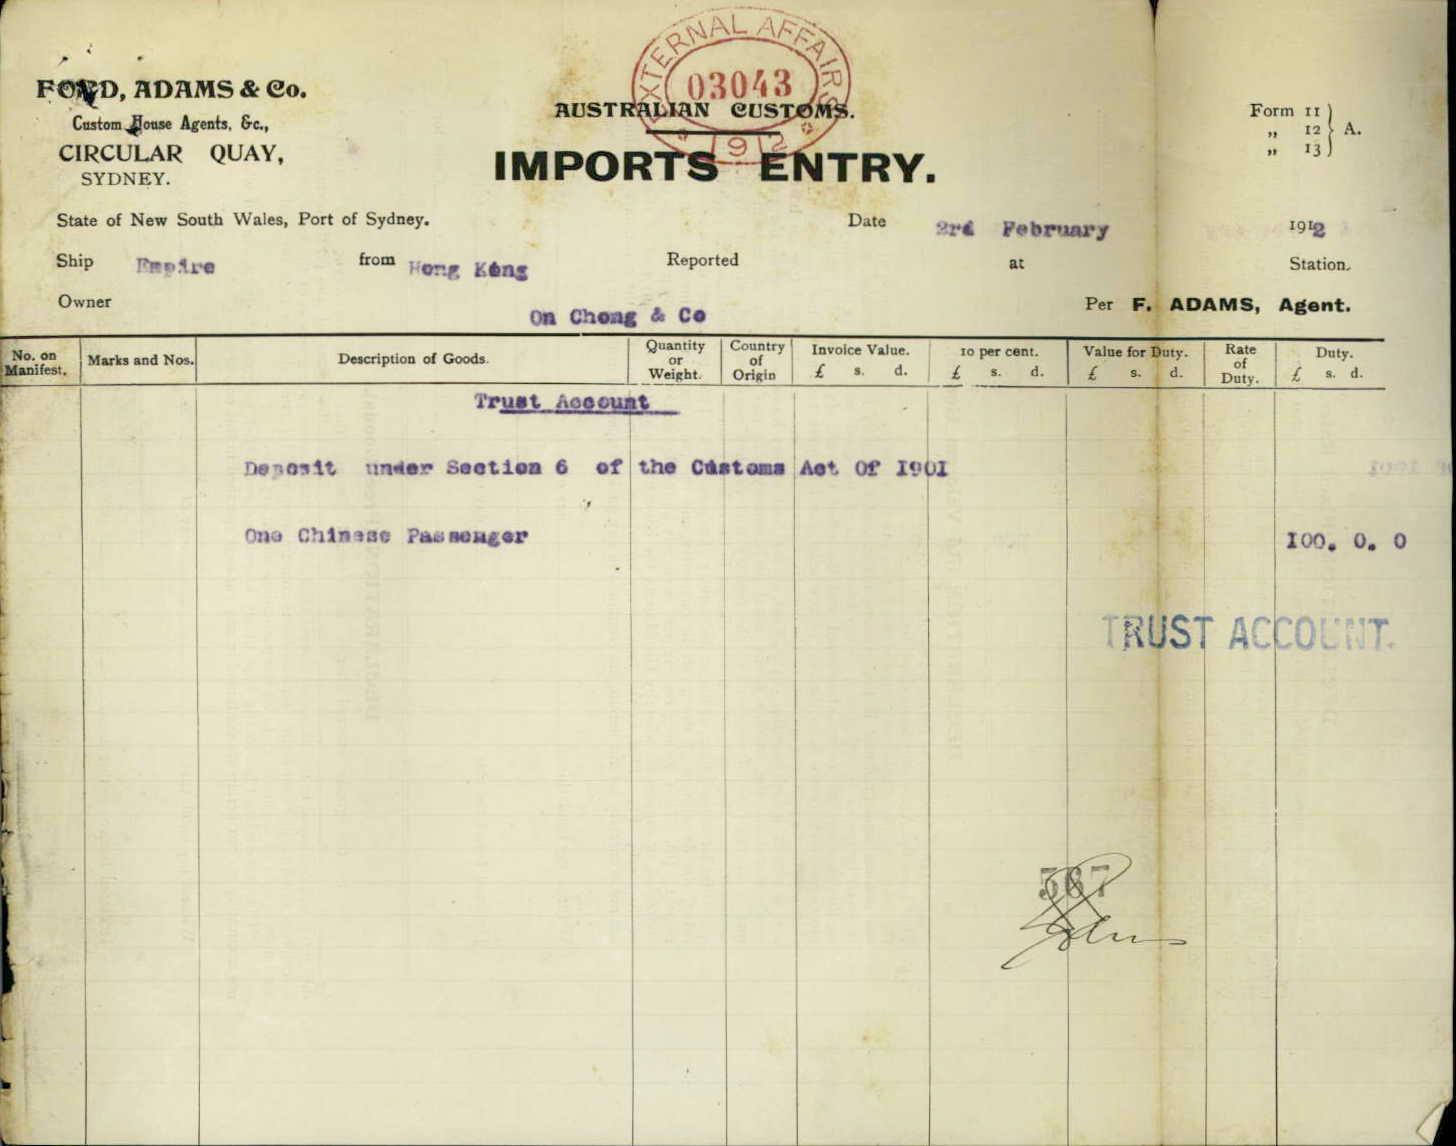 EXTERNAL AFFAIRS
03043
1912
FORD, ADAMS & Co.
Custom House Agents, &c.,
CIRCULAR QUAY,
SYDNEY.
AUSTRALIAN CUSTOMS.
IMPORTS ENTRY.
Form 11
„ 12 } A.
„ 13
State of New South Wales, Port of Sydney. Date 2rd February 1912
Ship Empire from Hong Kong Reported at Station.
Owner On Chong & Co Per F. ADAMS, Agent.
No. on Manifest. Marks and Nos. Description of Goods. Quantity or Weight. Country of Origin Invoice Value. £ s. d. 10 per cent. £ s. d. Value for Duty. £ s. d. Rate of Duty. Duty. £ s. d.
Trust Account
Deposit under Section 6 of the Customs Act Of 1901
One Chinese Passenger 100. 0. 0
TRUST ACCOUNT.
567